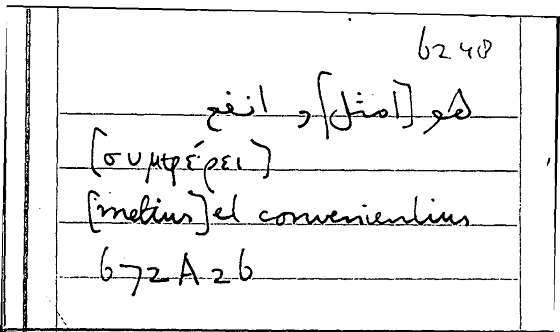 6248
هو [امثل] و انفع
[συμφέρει]
[melius] et convenientius
672A26